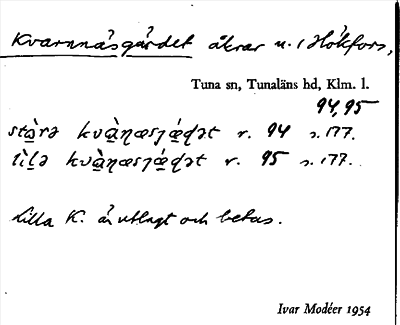 Kvarnnäsgärdet åkrar u. i Hökfors,
Tuna sn, Tunaläns hd, Klm. l.
94, 95
stòrə kvàn̥æsjǽḍət r. 94 s. 177.
lìlə kvàn̥æsjǽḍət r. 95 s. 177.
Lilla K. är utlagt och betas.
Ivar Modéer 1954